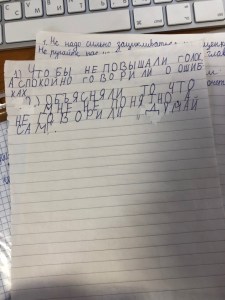 Не надо сильно зацикливаться
Не ругайте нас
1) ЧТО БЫ НЕ ПОВЫШАЛИ ГОЛОС
А СПОКОЙНО ГОВОРИЛИ О ОШИБ
КАХ.
2) ОБЪЯСНЯЛИ ТО ЧТО
МНЕ НЕ ПОНЯТНО А
НЕ ГОВОРИЛИ "ДУМАЙ
САМ".